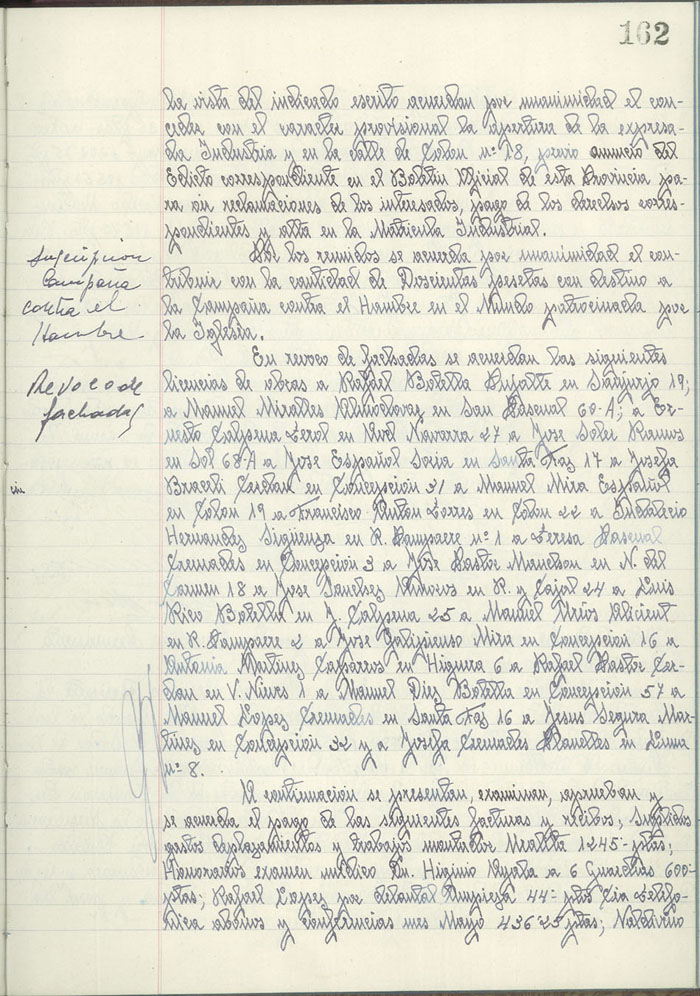 162
la vista del indicado escrito acuerdan por unanimidad el con-
ceder con el caracter provisional la apertura de la expresa-
da Industria y en la calle de Colon nº 18, previo anuncio del
Edicto correspondiente en el Boletin Oficial de esta Provincia pa-
ra oir reclamaciones de los interesados, pago de los derechos corres-
pondientes y alta en la Matricula Industrial.
Suscripcion
Campaña
contra el
Hambre
Por los reunidos se acuerda por unanimidad el con-
tribuir con la cantidad de Doscientas pesetas con destino a
la Campaña contra el Hambre en el Mundo patrocinada por
la Iglesia.
Revoco de
fachadas
En revoco de fachadas se acuerdan las siguientes
licencias de obras a Rafael Botella en Sanjurjo 19;
a Manuel Miralles en San Pascual 60-A; a Er-
nesto Calpena Cerol en Navarra 27 a Jose Soler Ramos
en Sol 68-A a Jose Español Soria en Santa Faz 17 a Josefa
Braceli Cerdan en Concepcion 31 a Manuel Mira Español
en Colon 19 a Francisco Anton Torres en Colon 22 a Indalecio
Hernandez Sigüenza en R. Campoere nº 1 a Teresa Pascual
Cremades en Concepcion 3 a Jose Pastor Manchon en N. del
Carmen 18 a Jose Sanchez en R. y Cajal 24 a Luis
Rico Botella en J. Calpena 25 a Manuel Urios Alicient
en R. Campoere 2 a Jose Galipienso Mira en Concepcion 16 a
Antonia Martinez Caparros en Higuera 6 a Rafael Pastor Cer-
dan en V. Nieves 1 a Manuel Diez Botella en Concepcion 57 a
Manuel Lopez Cremades en Santa Faz 16 a Jesus Segura Mar-
tinez en Concepcion 32 y a Josefa Cremades Planelles en Luna
nº 8.
A continuacion se presentan, examinan, aprueban y
se acuerda el pago de las siguientes facturas y recibos, Suplidos
gastos desplazamientos y trabajos montador 1245- ptas;
Honorarios examen medico Dn. Higinio Ayala a 6 Guardias 600-
ptas; Rafael Lopez por delantal limpieza 44- ptas Cia Telefo-
nica abonos y conferencias mes Mayo 436'25 ptas;